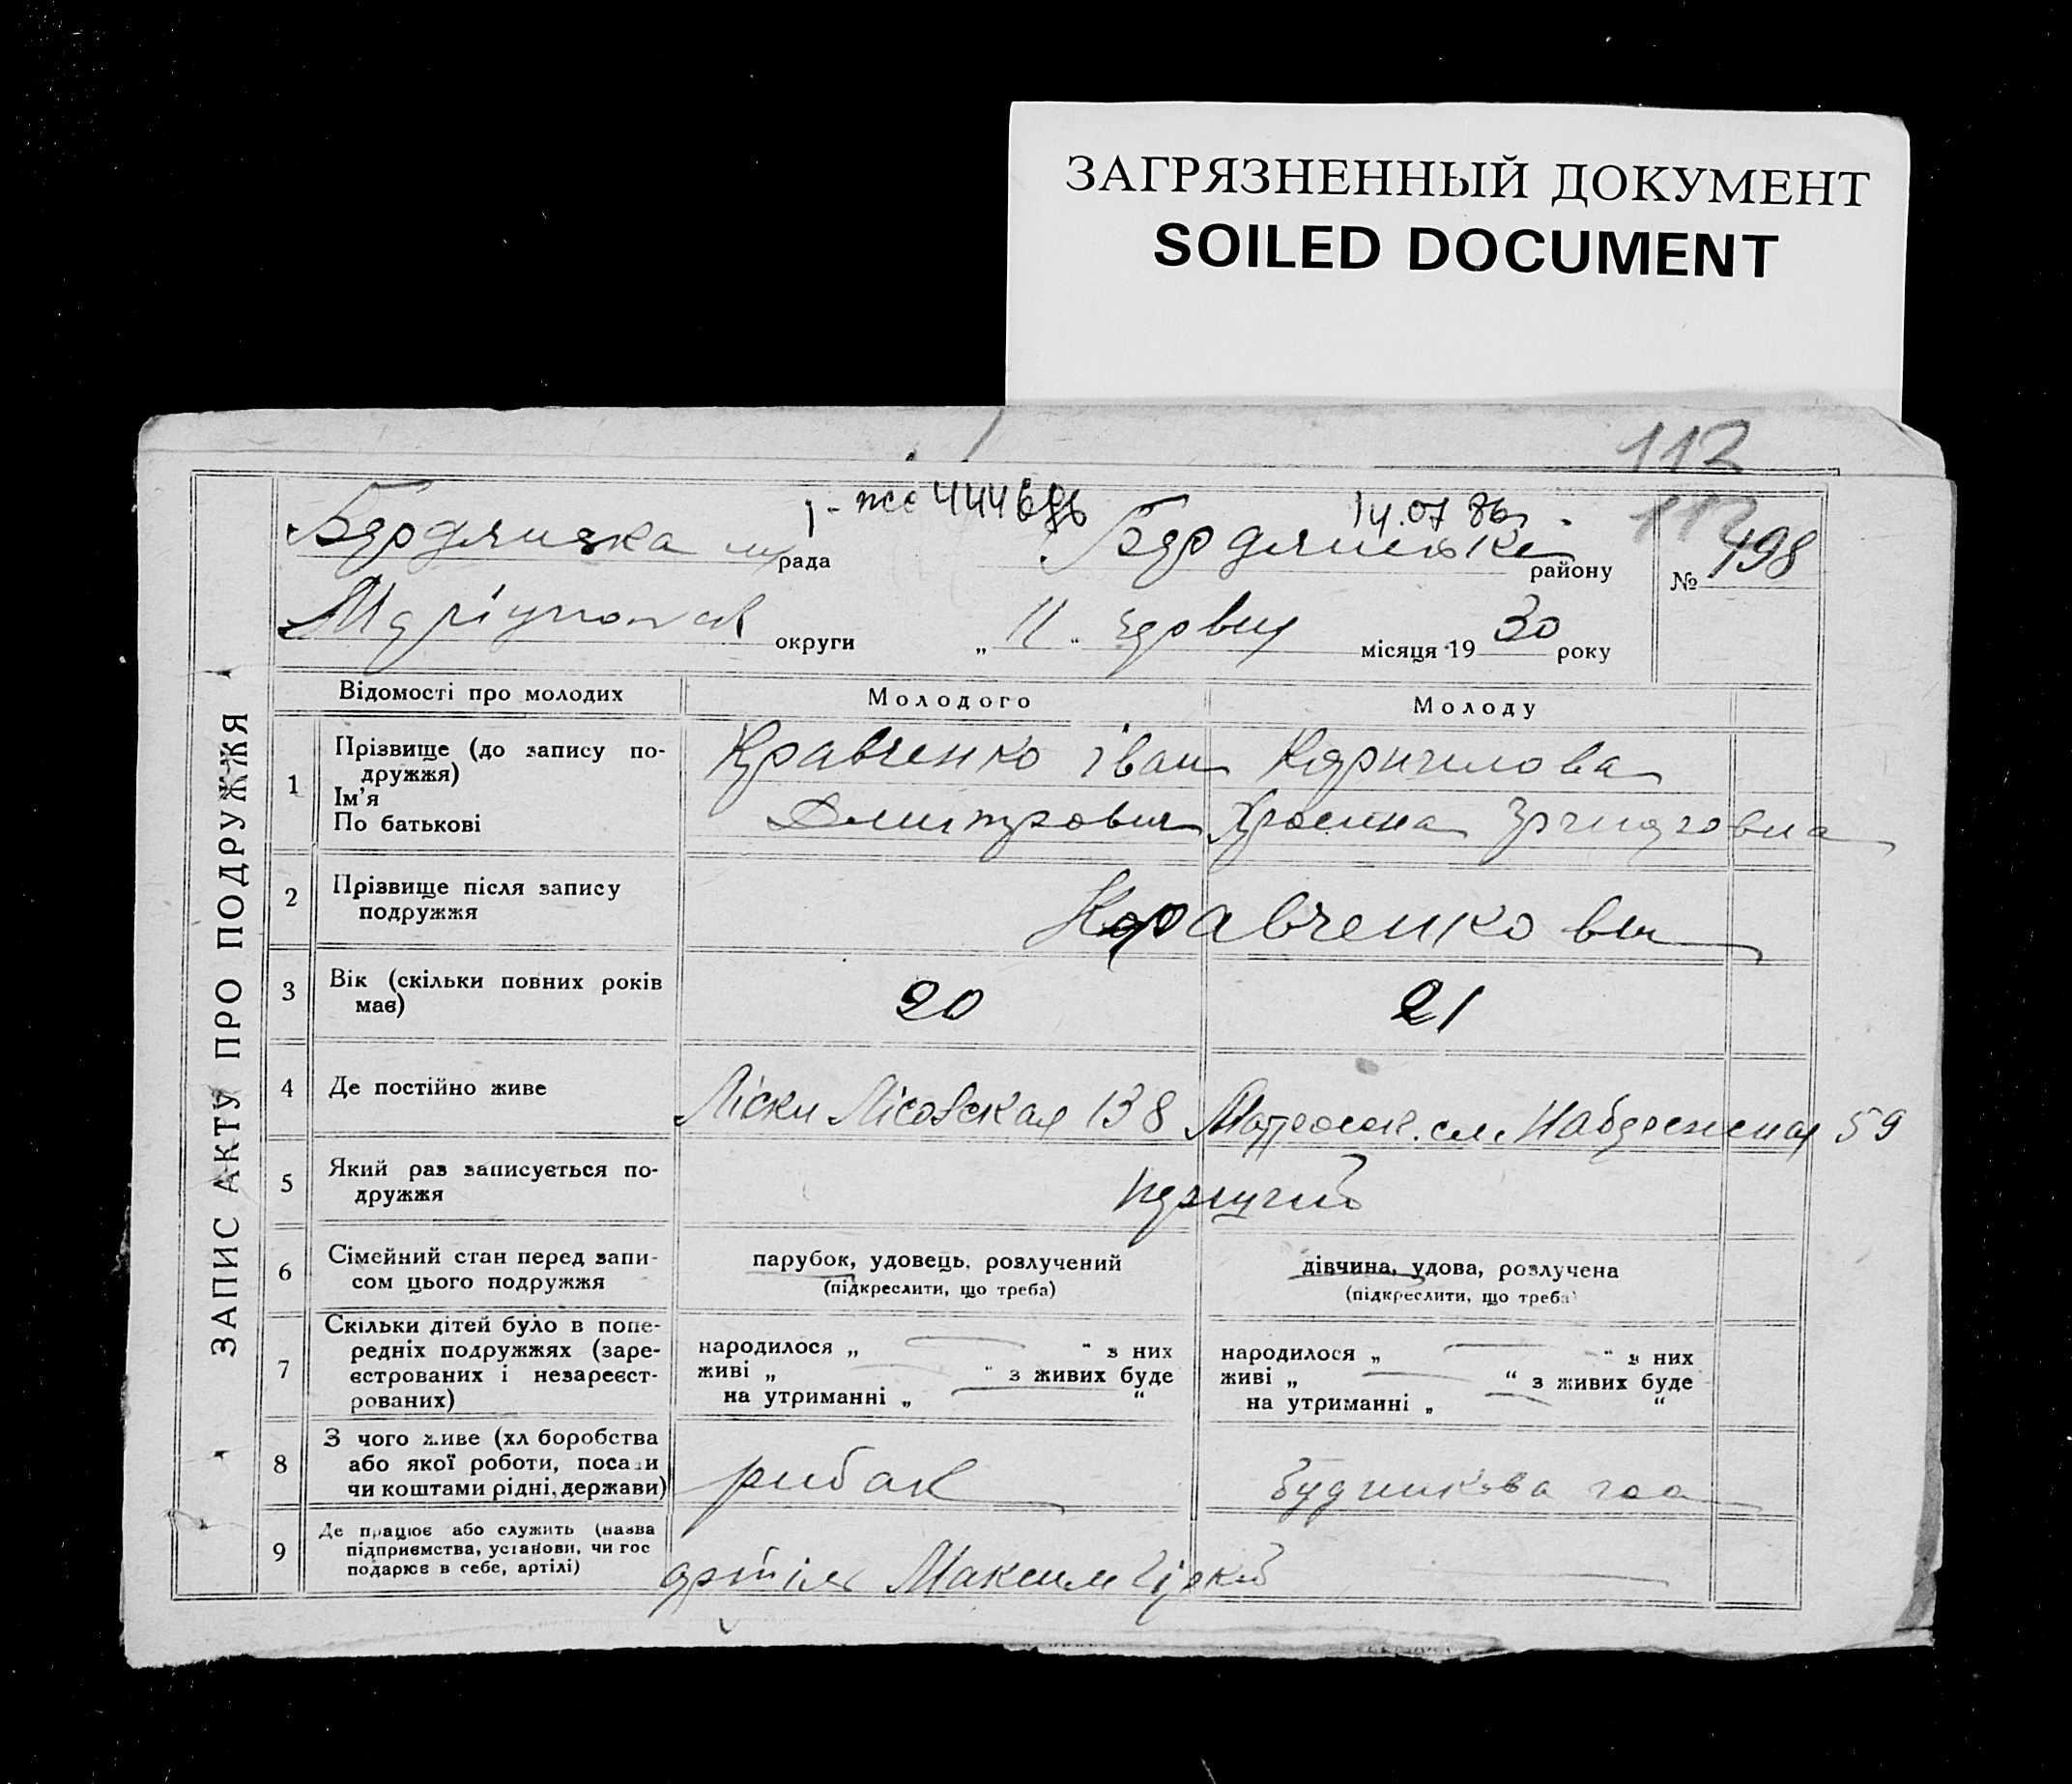 ЗАГРЯЗНЕННЫЙ ДОКУМЕНТ
SOILED DOCUMENT
112
112
14.07 86г.
Бердянська рада Бердянське району № 498
Маріупольск округи „ 11 " червця місяця 1930 року
ЗАПИС АКТУ ПРО ПОДРУЖЖЯ
Відомості про молодих Молодого Молоду
1 Прізвище (до запису по-
дружжя)
Ім'я
По батькові
Кравченко Іван
Дмитрович
2 Прізвище після запису
подружжя
Кравченко вы
3 Вік (скільки повних років
має)
20 21
4 Де постійно живе
Ліски Лісовская 138 сл. Набережная 59
5 Який раз записується по-
дружжя
перший
6 Сімейний стан перед запи-
сом цього подружжя
парубок, удовець, розлучений
(підкреслити, що треба)
дівчина, удова, розлучена
(підкреслити, що треба)
7 Скільки дітей було в попе-
редніх подружжях (заре-
єстрованих і незареєст-
рованих)
народилося „ — " з них
живі „ — " з живих буде
на утриманні „ — "
народилося „ — " з них
живі „ — " з живих буде
на утриманні „ — "
8 З чого живе (хліборобства
або якої роботи, посади
чи коштами рідні, держави)
рибак
9 Де працює або служить (назва
підприємства, установи, чи гос
подарює в себе, артілі)
артіль Максим Горкий —